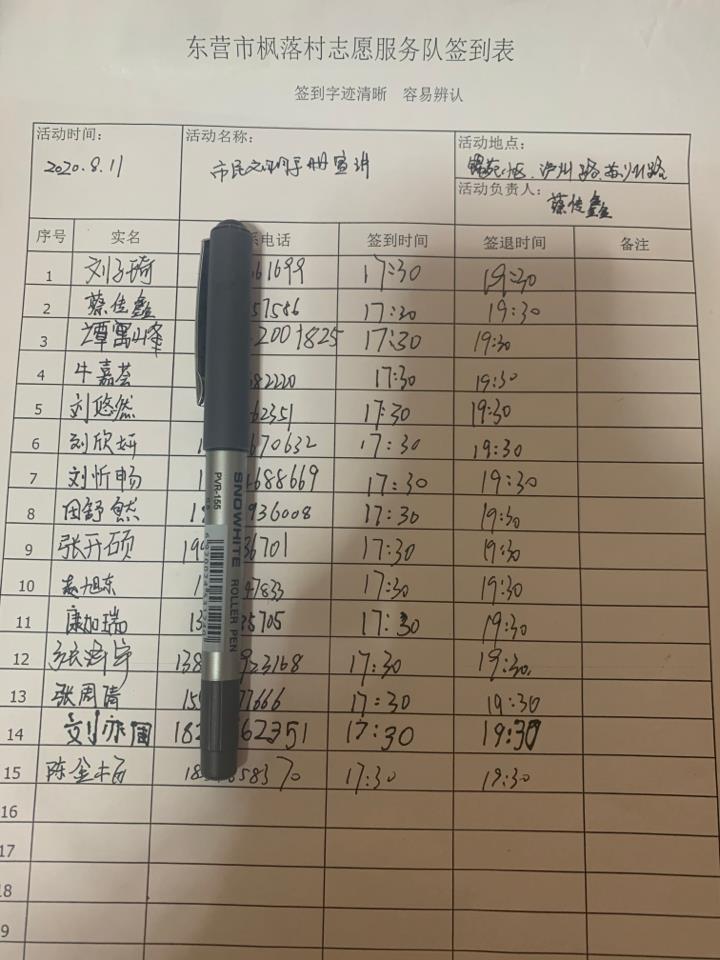 东营市枫落村志愿服务队签到表
签到字迹清晰 容易辨认
活动时间: 活动名称: 活动地点:
2020.8.11 市民文明手册宣讲 锦苑小区、泸州路、苏州路
活动负责人: 蔡佳鑫
序号 实名 系电话 签到时间 签退时间 备注
1 刘子琦 61699 17:30 19:30
2 蔡佳鑫 57586 17:30 19:30
3 谭寓峰 2001825 17:30 19:30
4 牛嘉荟 82220 17:30 19:30
5 刘悠然 62351 17:30 19:30
6 刘欣妍 1 670632 17:30 19:30
7 刘忻畅 1 688669 17:30 19:30
8 田舒然 1 936008 17:30 19:30
9 张开硕 19 36701 17:30 19:30
10 旭东 1 47833 17:30 19:30
11 康加瑞 13 5705 17:30 19:30
12 张泽宇 138 923168 17:30 19:30
13 张周倩 15 77666 17:30 19:30
14 刘亦国 18 62351 17:30 19:30
15 陈金 18 58370 17:30 19:30
16
17
18
9
PVR-155
SNOWHITE ROLLER PEN